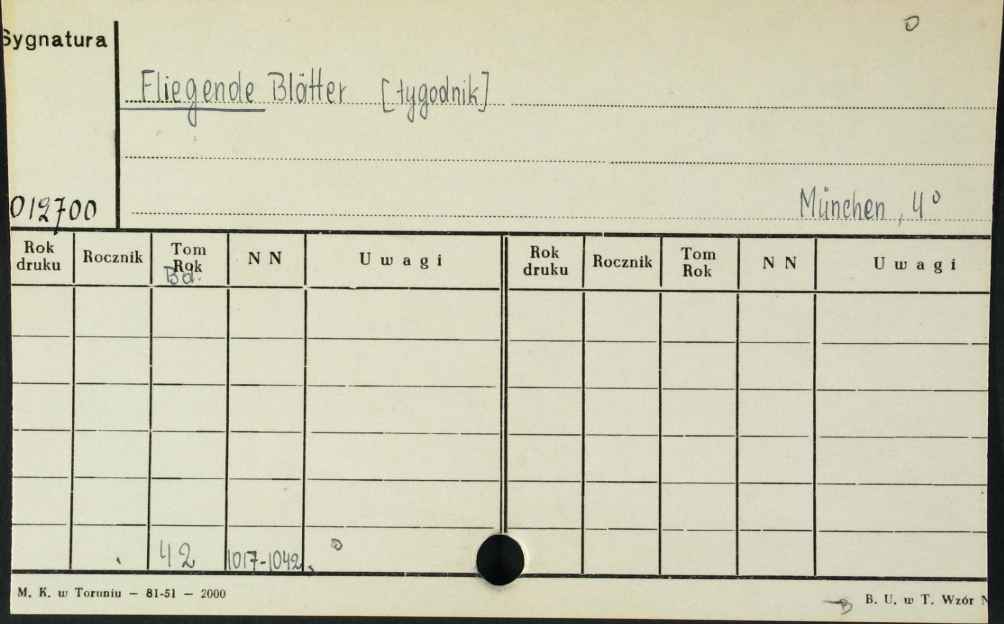 Sygnatura
Fliegende Blätter [tygodnik]
012700
München, 4°
Rok druku Rocznik Tom Rok NN Uwagi Rok druku Rocznik Tom Rok NN Uwagi
Bd.
42 1017-1042.
M. K. w Toruniu — 81-51 — 2000
B. U. w T. Wzór N